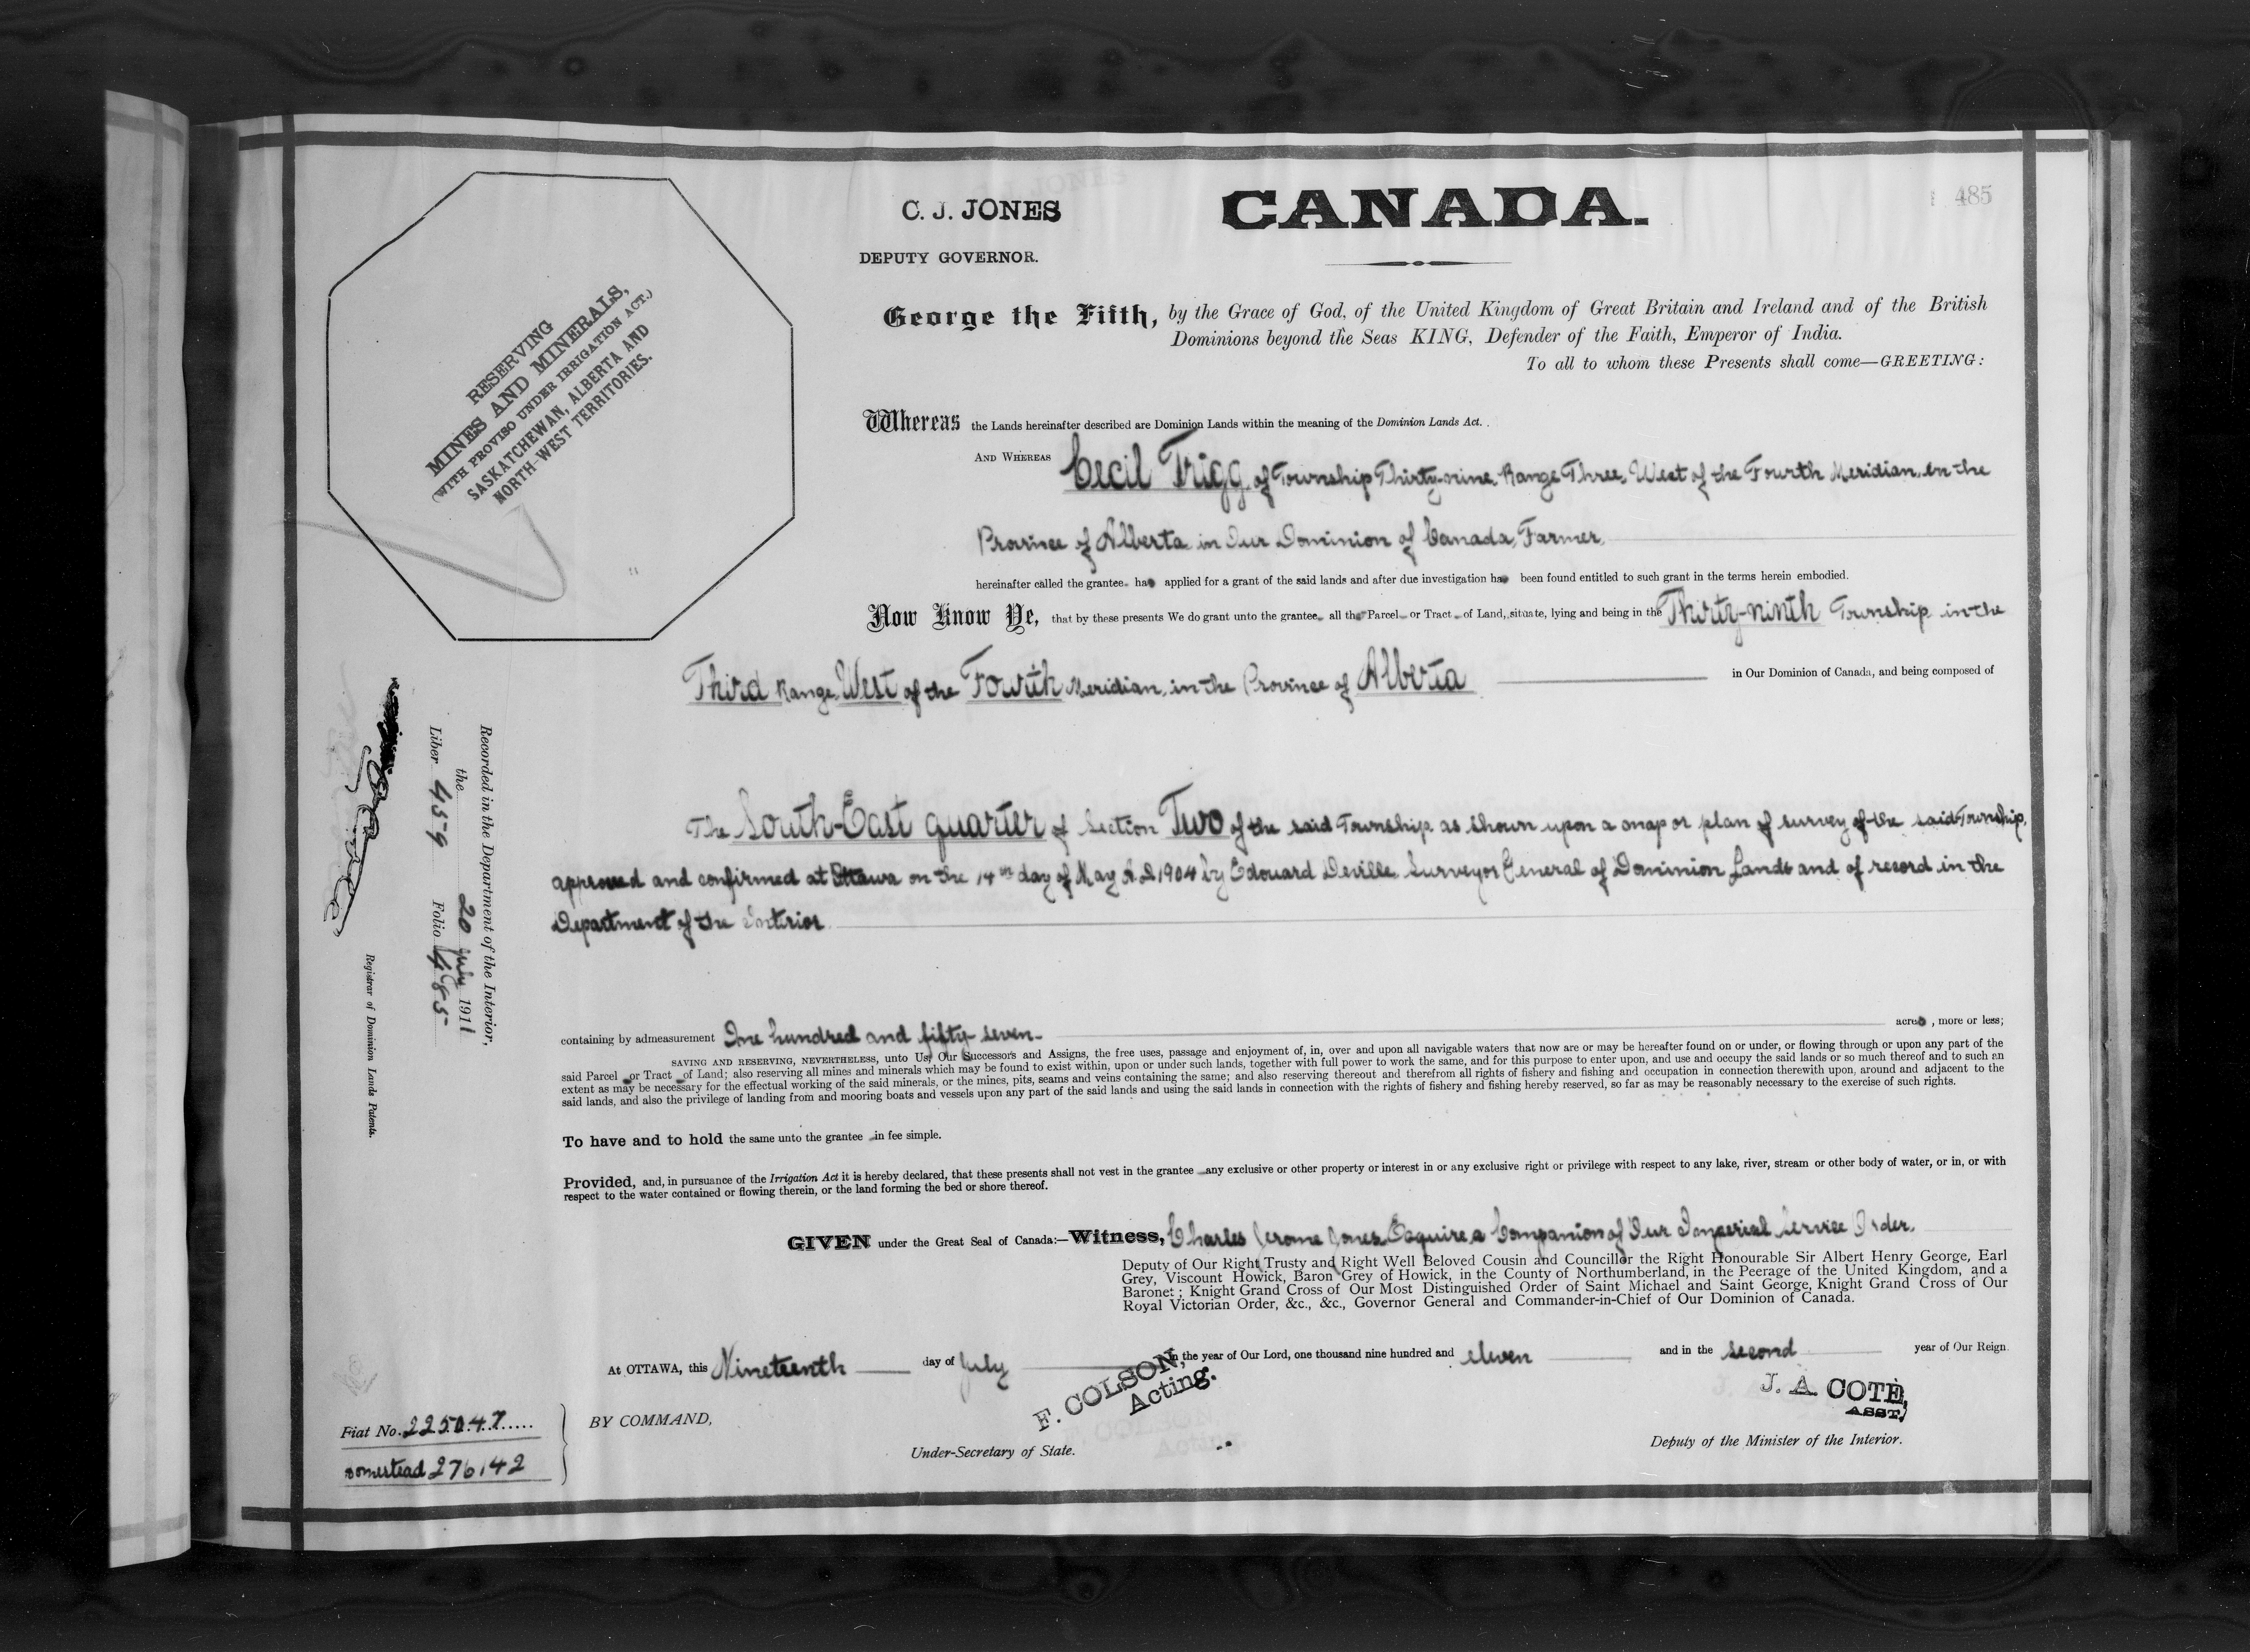 485
C. J. JONES
CANADA.
DEPUTY GOVERNOR.
RESERVING
MINES AND MINERALS,
(WITH PROVISO UNDER IRRIGATION ACT.)
SASKATCHEWAN, ALBERTA AND
NORTH-WEST TERRITORIES.
George the Fifth, by the Grace of God, of the United Kingdom of Great Britain and Ireland and of the British
Dominions beyond the Seas KING, Defender of the Faith, Emperor of India.
To all to whom these Presents shall come—GREETING:
Whereas the Lands hereinafter described are Dominion Lands within the meaning of the Dominion Lands Act.
AND WHEREAS Cecil Trigg, of Township Thirty-nine, Range Three, West of the Fourth Meridian, in the
Province of Alberta in Our Dominion of Canada, Farmer,
hereinafter called the grantee has applied for a grant of the said lands and after due investigation has been found entitled to such grant in the terms herein embodied.
Now Know Ye, that by these presents We do grant unto the grantee all that Parcel or Tract of Land, situate, lying and being in the Thirty-ninth Township, in the
Third Range, West of the Fourth Meridian, in the Province of Alberta in Our Dominion of Canada, and being composed of
The South-East quarter of Section Two of the said Township, as shown upon a map or plan of survey of the said Township,
approved and confirmed at Ottawa on the 14th day of May A.D. 1904 by Edouard Deville, Surveyor General of Dominion Lands and of record in the
Department of the Interior.
containing by admeasurement One hundred and fifty-seven acres, more or less;
SAVING AND RESERVING, NEVERTHELESS, unto Us, Our Successors and Assigns, the free uses, passage and enjoyment of, in, over and upon all navigable waters that now are or may be hereafter found on or under, or flowing through or upon any part of the
said Parcel or Tract of Land; also reserving all mines and minerals which may be found to exist within, upon or under such lands, together with full power to work the same, and for this purpose to enter upon, and use and occupy the said lands or so much thereof and to such an
extent as may be necessary for the effectual working of the said minerals, or the mines, pits, seams and veins containing the same; and also reserving thereout and therefrom all rights of fishery and fishing and occupation in connection therewith upon, around and adjacent to the
said lands, and also the privilege of landing from and mooring boats and vessels upon any part of the said lands and using the said lands in connection with the rights of fishery and fishing hereby reserved, so far as may be reasonably necessary to the exercise of such rights.
To have and to hold the same unto the grantee in fee simple.
Provided, and, in pursuance of the Irrigation Act it is hereby declared, that these presents shall not vest in the grantee any exclusive or other property or interest in or any exclusive right or privilege with respect to any lake, river, stream or other body of water, or in, or with
respect to the water contained or flowing therein, or the land forming the bed or shore thereof.
GIVEN under the Great Seal of Canada:—Witness, Charles Jerome Jones, Esquire, a Companion of Our Imperial Service Order,
Deputy of Our Right Trusty and Right Well Beloved Cousin and Councillor the Right Honourable Sir Albert Henry George, Earl
Grey, Viscount Howick, Baron Grey of Howick, in the County of Northumberland, in the Peerage of the United Kingdom, and a
Baronet; Knight Grand Cross of Our Most Distinguished Order of Saint Michael and Saint George, Knight Grand Cross of Our
Royal Victorian Order, &c., &c., Governor General and Commander-in-Chief of Our Dominion of Canada.
At OTTAWA, this Nineteenth day of July in the year of Our Lord, one thousand nine hundred and eleven and in the second year of Our Reign.
BY COMMAND,
F. COLSON,
Acting.
Under-Secretary of State.
J. A. COTE,
ASST.
Deputy of the Minister of the Interior.
Fiat No. 225047
Homestead 276142
Recorded in the Department of the Interior,
the 20 July 1911
Liber 459 Folio 485
Registrar of Dominion Lands Patents.